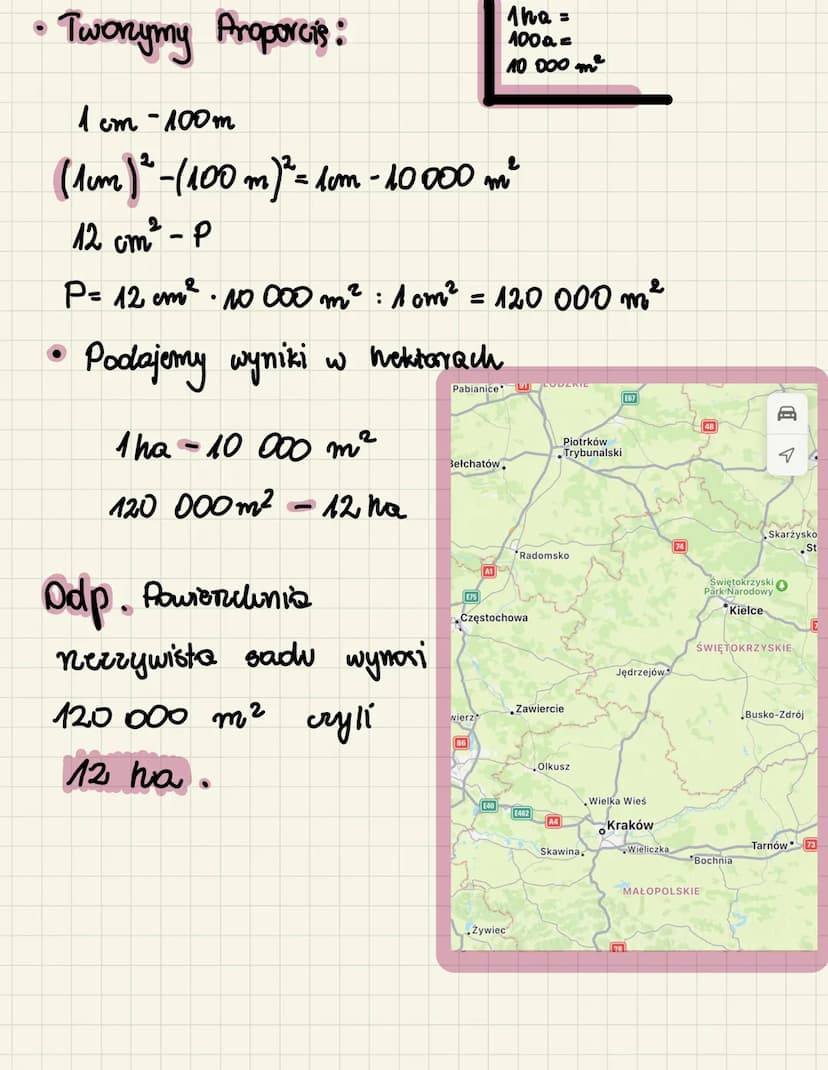 • Tworzymy Proporcję:
1ha =
100a =
10 000 m²
1 cm - 100m
(1cm)² - (100 m)² = 1cm - 10 000 m²
12 cm² - P
P = 12 cm² · 10 000 m² : 1 cm² = 120 000 m²
• Podajemy wyniki w hektarach
1ha - 10 000 m²
120 000m² - 12 ha
Odp. Powierzchnia
rzeczywista sadu wynosi
120 000 m² czyli
12 ha.
Pabianice
ŁÓDZKIE
E67
48
Piotrków
Trybunalski
Bełchatów
Skarżysko
St
74
Radomsko
A1
E75
Świętokrzyski
Park Narodowy
Kielce
7
Częstochowa
ŚWIĘTOKRZYSKIE
Jędrzejów
Zawiercie
wierz
Busko-Zdrój
86
Olkusz
Wielka Wieś
E40
E462
A4
Kraków
Tarnów
73
Skawina
Wieliczka
Bochnia
MAŁOPOLSKIE
Żywiec
28